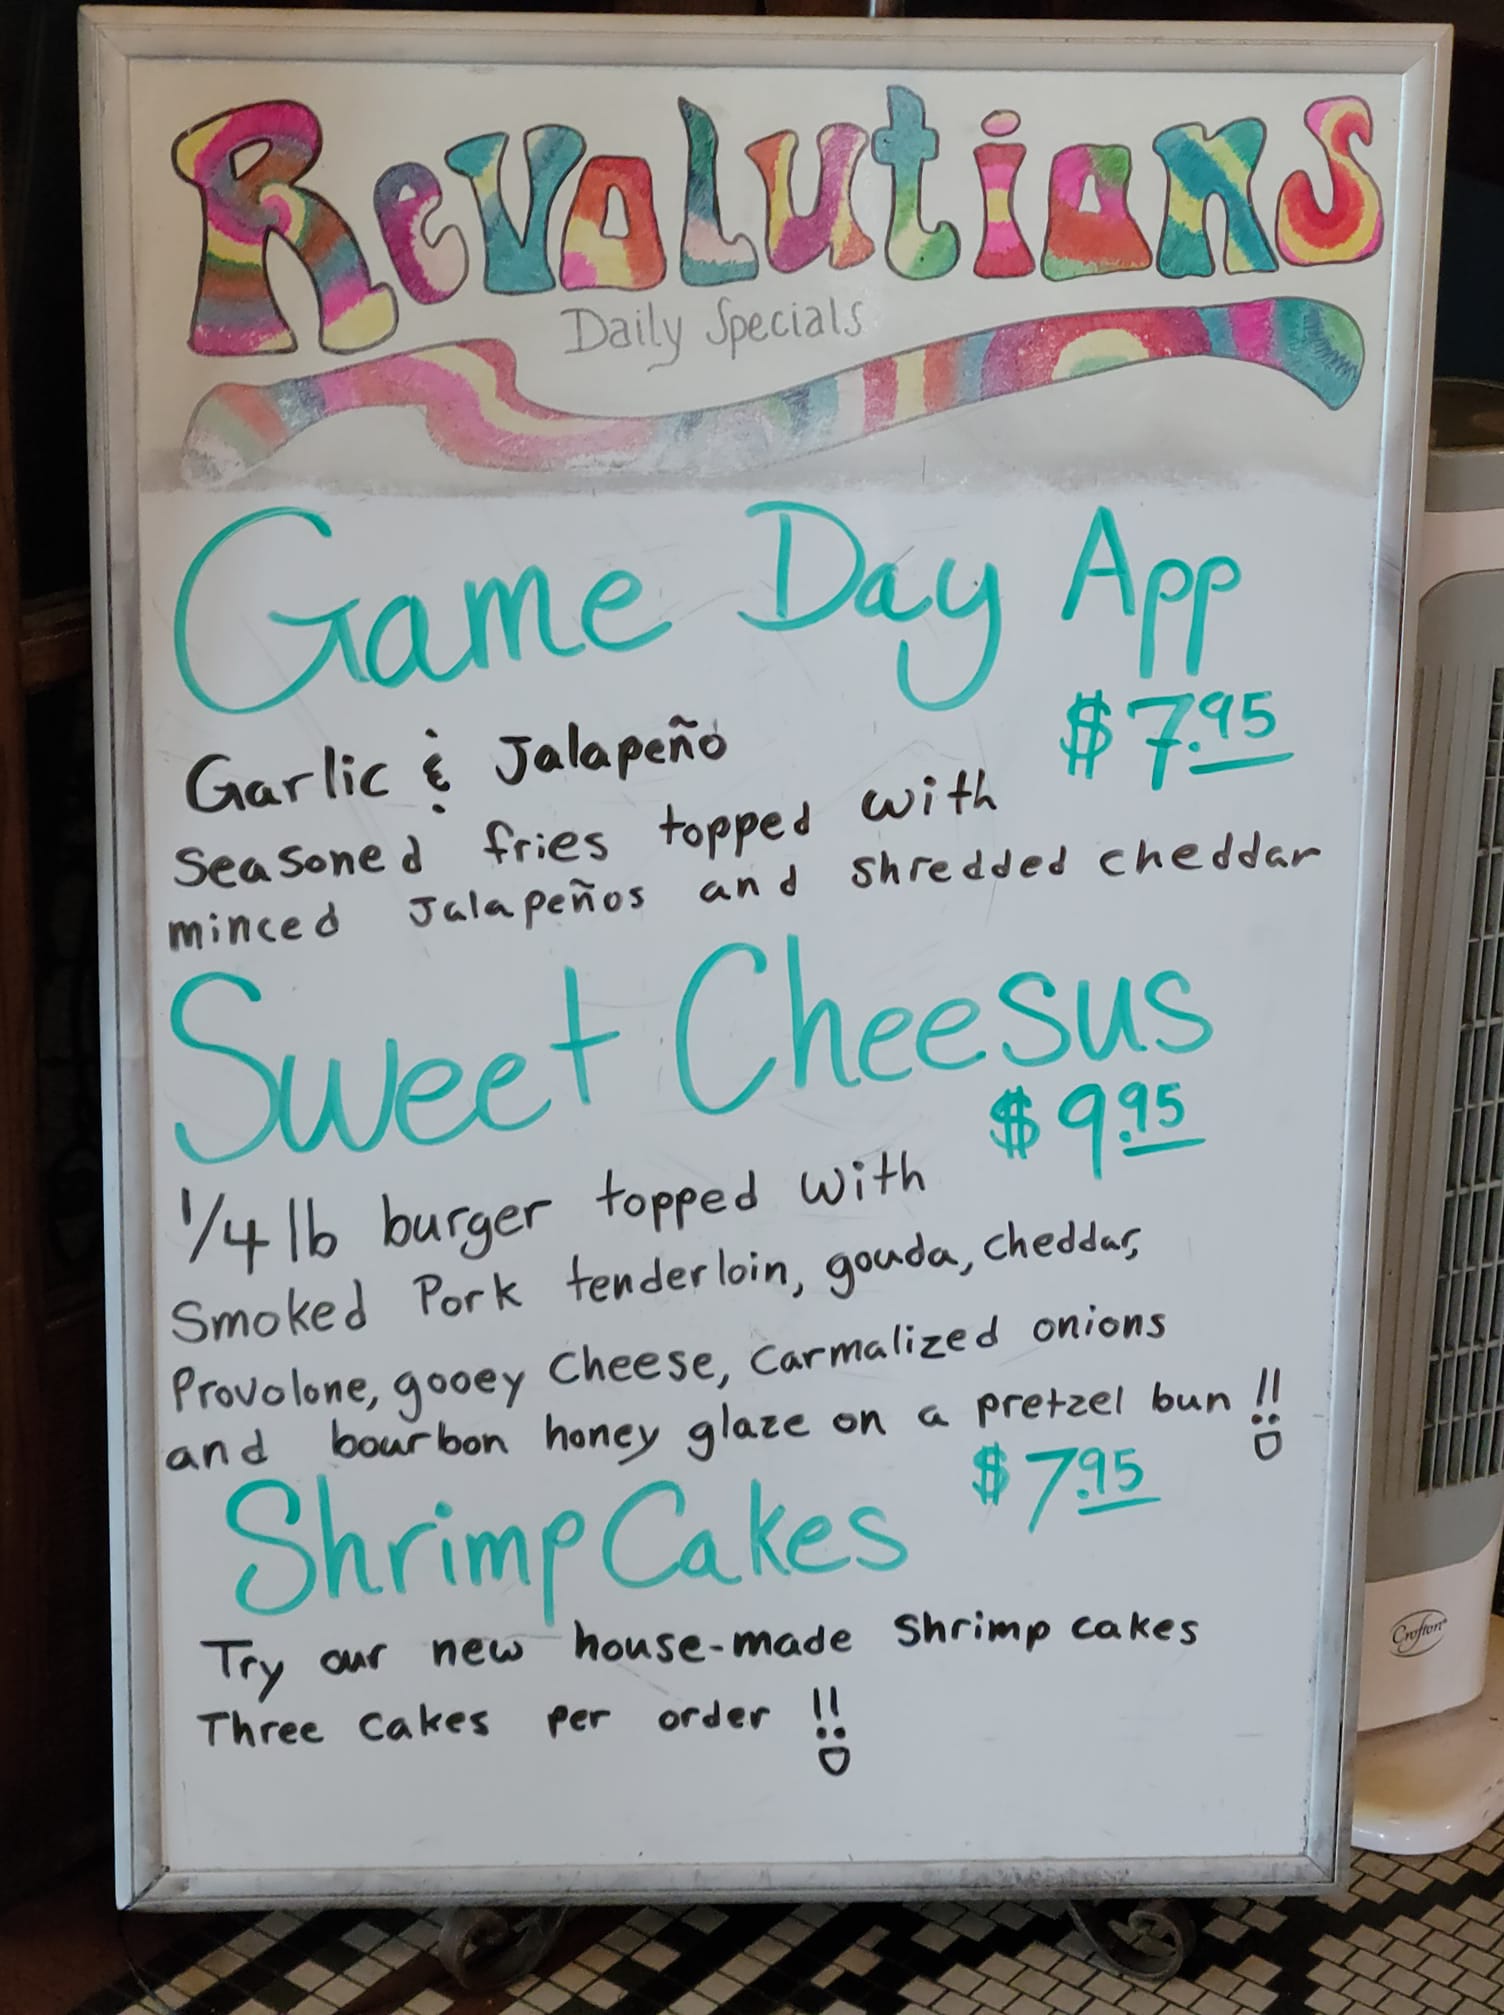 Revolutions
Daily Specials
Game Day App
$7.95
Garlic & Jalapeño
seasoned fries topped with
minced Jalapeños and shredded cheddar
Sweet Cheesus
$9.95
1/4 lb burger topped with
Smoked Pork tenderloin, gouda, cheddar,
Provolone, gooey cheese, carmalized onions
and bourbon honey glaze on a pretzel bun !!
Shrimp Cakes $7.95
Try our new house-made shrimp cakes
Three cakes per order !!
Crofton